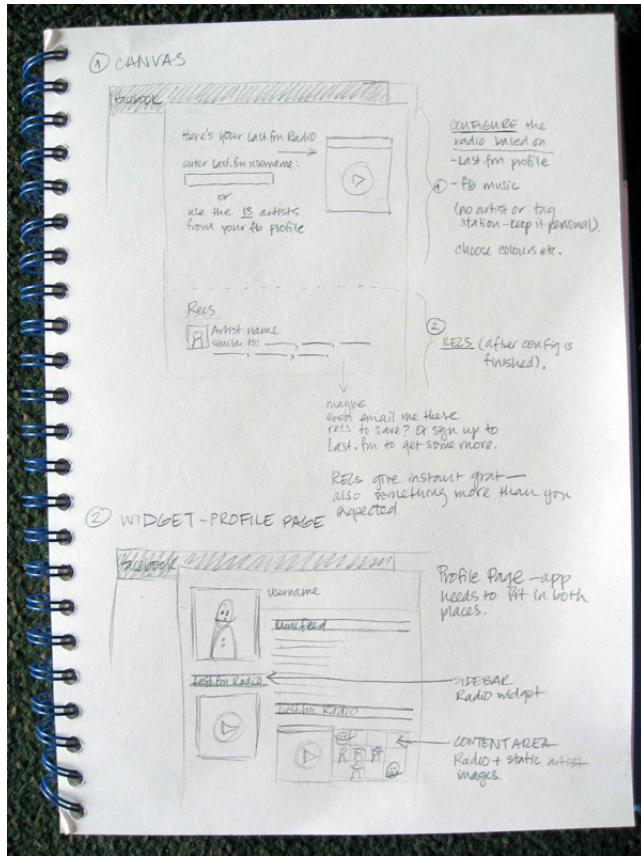 ① CANVAS
facebook
Here's your Last.fm Radio
enter Last.fm username:
or
use the 13 artists
from your fb profile
Recs
Artist name
similar to:
① CONFIGURE the
radio based on
- Last.fm profile
- fb music
(no artist or tag
station - keep it personal).
choose colours etc.
②
RECS (after config is
finished).
maybe
email me these
recs to save? Or sign up to
Last.fm to get some more.
RECs give instant grat—
also something more than you
expected
② WIDGET - PROFILE PAGE
facebook
username
Minifeed
Last.fm Radio
Last.fm Radio
Profile Page - app
needs to fit in both
places.
SIDEBAR
Radio widget
CONTENT AREA
Radio + static artist
images.